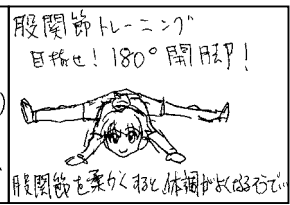 股関節トレーニング
目指せ！180°開脚！
股関節を柔かくすると、体調がよくなるそうで…